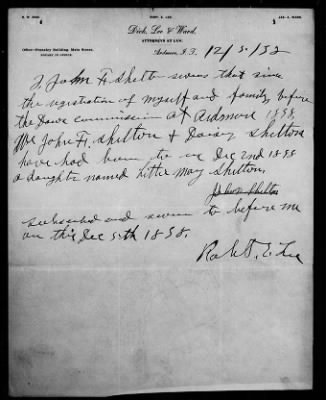 ROBT. E. LEE
Dick, Lee & Ward,
ATTORNEYS AT LAW.
Office—Pennsley Building, Main Street.
Ardmore, I.T. 12/5/98
I John H Shelton swears that since
the registration of myself and family before
the Dawes Commission at Ardmore 1898,
We John H. Shelton & Daisy Shelton
have had born to us Dec 2nd 1898
a daughter named Little May Shelton.
John Shelton
subscribed and sworn to before me
on this Dec 5th 1898.
Robt. E. Lee